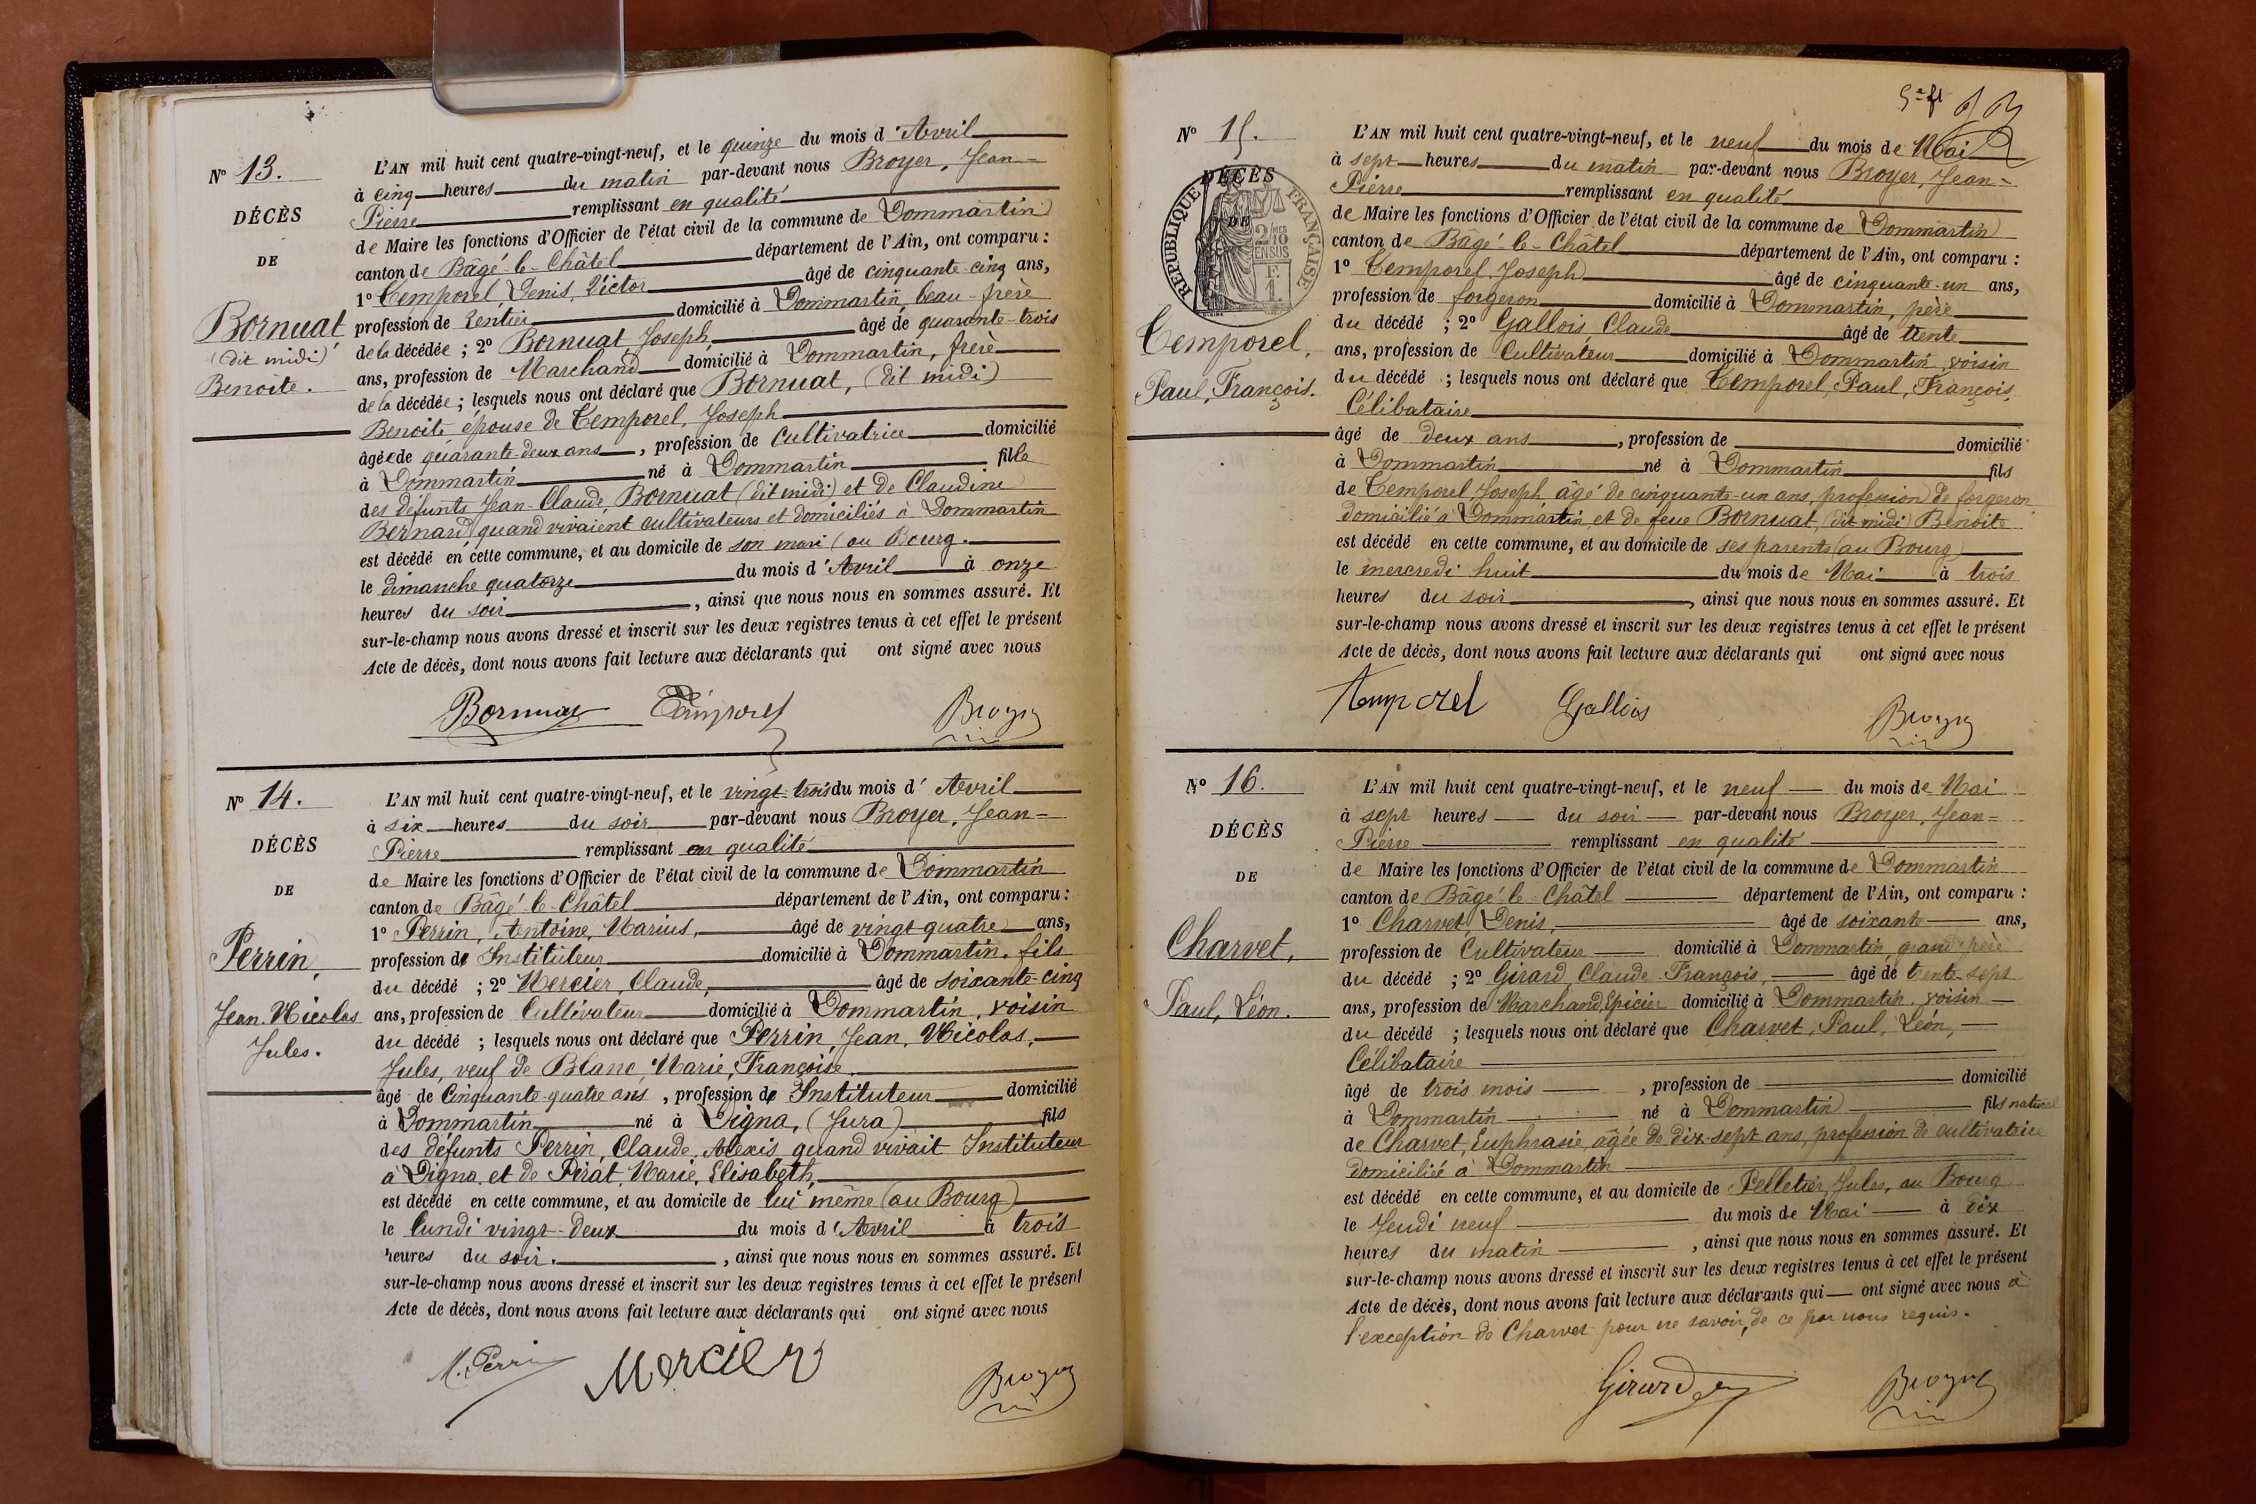 N° 13.
DÉCÈS
DE
Bornuat
(dit midi)
Benoite.
L'AN mil huit cent quatre-vingt-neuf, et le quinze du mois d'Avril
à cinq heures du matin par-devant nous Broyer, Jean-
Pierre remplissant en qualité
de Maire les fonctions d'Officier de l'état civil de la commune de Dommartin
canton de Bâgé-le-Châtel département de l'Ain, ont comparu :
1° Temporel, Denis, Victor âgé de cinquante-cinq ans,
profession de Rentier domicilié à Dommartin, beau-frère
de la décédée ; 2° Bornuat Joseph, âgé de quarante-trois
ans, profession de Marchand domicilié à Dommartin, frère
de la décédée ; lesquels nous ont déclaré que Bornuat, (dit midi)
Benoite épouse de Temporel, Joseph
âgée de quarante-deux ans, profession de Cultivatrice domicilié
à Dommartin né à Dommartin fille
des défunts Jean-Claude, Bornuat (dit midi) et de Claudine
Bernard quand vivaient cultivateurs et domiciliés à Dommartin
est décédé en cette commune, et au domicile de son mari (au Bourg.
le dimanche quatorze du mois d'Avril à onze
heures du soir, ainsi que nous nous en sommes assuré. Et
sur-le-champ nous avons dressé et inscrit sur les deux registres tenus à cet effet le présent
Acte de décès, dont nous avons fait lecture aux déclarants qui ont signé avec nous
Bornuat Temporel Broyer
N° 14.
DÉCÈS
DE
Perrin,
Jean. Nicolas
Jules.
L'AN mil huit cent quatre-vingt-neuf, et le vingt-trois du mois d'Avril
à six heures du soir par-devant nous Broyer, Jean-
Pierre remplissant en qualité
de Maire les fonctions d'Officier de l'état civil de la commune de Dommartin
canton de Bâgé-le-Châtel département de l'Ain, ont comparu :
1° Perrin, Antoine, Marius, âgé de vingt-quatre ans,
profession de Instituteur domicilié à Dommartin. fils
du décédé ; 2° Mercier, Claude, âgé de soixante-cinq
ans, profession de Cultivateur domicilié à Dommartin, voisin
du décédé ; lesquels nous ont déclaré que Perrin, Jean, Nicolas,
Jules, veuf de Blanc, Marie, Françoise.
âgé de Cinquante-quatre ans, profession de Instituteur domicilié
à Dommartin né à Digna, (Jura) fils
des défunts Perrin, Claude, Alexis, quand vivait Instituteur
à Digna, et de Pirat, Marie, Elisabeth,
est décédé en cette commune, et au domicile de lui même (au Bourg)
le lundi vingt-deux du mois d'Avril à trois
heures du soir., ainsi que nous nous en sommes assuré. Et
sur-le-champ nous avons dressé et inscrit sur les deux registres tenus à cet effet le présent
Acte de décès, dont nous avons fait lecture aux déclarants qui ont signé avec nous
M. Perrin Mercier Broyer
N° 15.
DÉCÈS
DE
RÉPUBLIQUE FRANÇAISE
2/10 MES
EN SUS
F.
1.
Temporel,
Paul, François.
L'AN mil huit cent quatre-vingt-neuf, et le neuf du mois de Mai
à sept heures du matin par-devant nous Broyer, Jean-
Pierre remplissant en qualité
de Maire les fonctions d'Officier de l'état civil de la commune de Dommartin
canton de Bâgé-le-Châtel département de l'Ain, ont comparu :
1° Temporel, Joseph âgé de cinquante-un ans,
profession de forgeron domicilié à Dommartin, père
du décédé ; 2° Gallois, Claude âgé de trente
ans, profession de Cultivateur domicilié à Dommartin, voisin
du décédé ; lesquels nous ont déclaré que Temporel, Paul, François,
Célibataire
âgé de deux ans, profession de domicilié
à Dommartin né à Dommartin fils
de Temporel, Joseph âgé de cinquante-un ans, profession de forgeron
domicilié à Dommartin, et de feue Bornuat, (dit midi) Benoite
est décédé en cette commune, et au domicile de ses parents (au Bourg)
le mercredi huit du mois de Mai à trois
heures du soir, ainsi que nous nous en sommes assuré. Et
sur-le-champ nous avons dressé et inscrit sur les deux registres tenus à cet effet le présent
Acte de décès, dont nous avons fait lecture aux déclarants qui ont signé avec nous
Temporel Gallois Broyer
N° 16.
DÉCÈS
DE
Charvet,
Paul, Léon.
L'AN mil huit cent quatre-vingt-neuf, et le neuf du mois de Mai
à sept heures du soir par-devant nous Broyer, Jean-
Pierre remplissant en qualité
de Maire les fonctions d'Officier de l'état civil de la commune de Dommartin
canton de Bâgé-le-Châtel département de l'Ain, ont comparu :
1° Charvet, Denis, âgé de soixante ans,
profession de Cultivateur domicilié à Dommartin, grand-père
du décédé ; 2° Girard, Claude-François, âgé de trente-sept
ans, profession de Marchand Epicier domicilié à Dommartin. voisin
du décédé ; lesquels nous ont déclaré que Charvet, Paul, Léon,
Célibataire
âgé de trois mois, profession de domicilié
à Dommartin né à Dommartin fils naturel
de Charvet, Euphrasie, âgée de dix-sept ans, profession de cultivatrice
domiciliée à Dommartin
est décédé en cette commune, et au domicile de Pelletier, Jules, au Bourg
le Jeudi neuf du mois de Mai à dix
heures du matin, ainsi que nous nous en sommes assuré. Et
sur-le-champ nous avons dressé et inscrit sur les deux registres tenus à cet effet le présent
Acte de décès, dont nous avons fait lecture aux déclarants qui ont signé avec nous à
l'exception de Charvet pour ne savoir, de ce par nous requis.
Girard Broyer